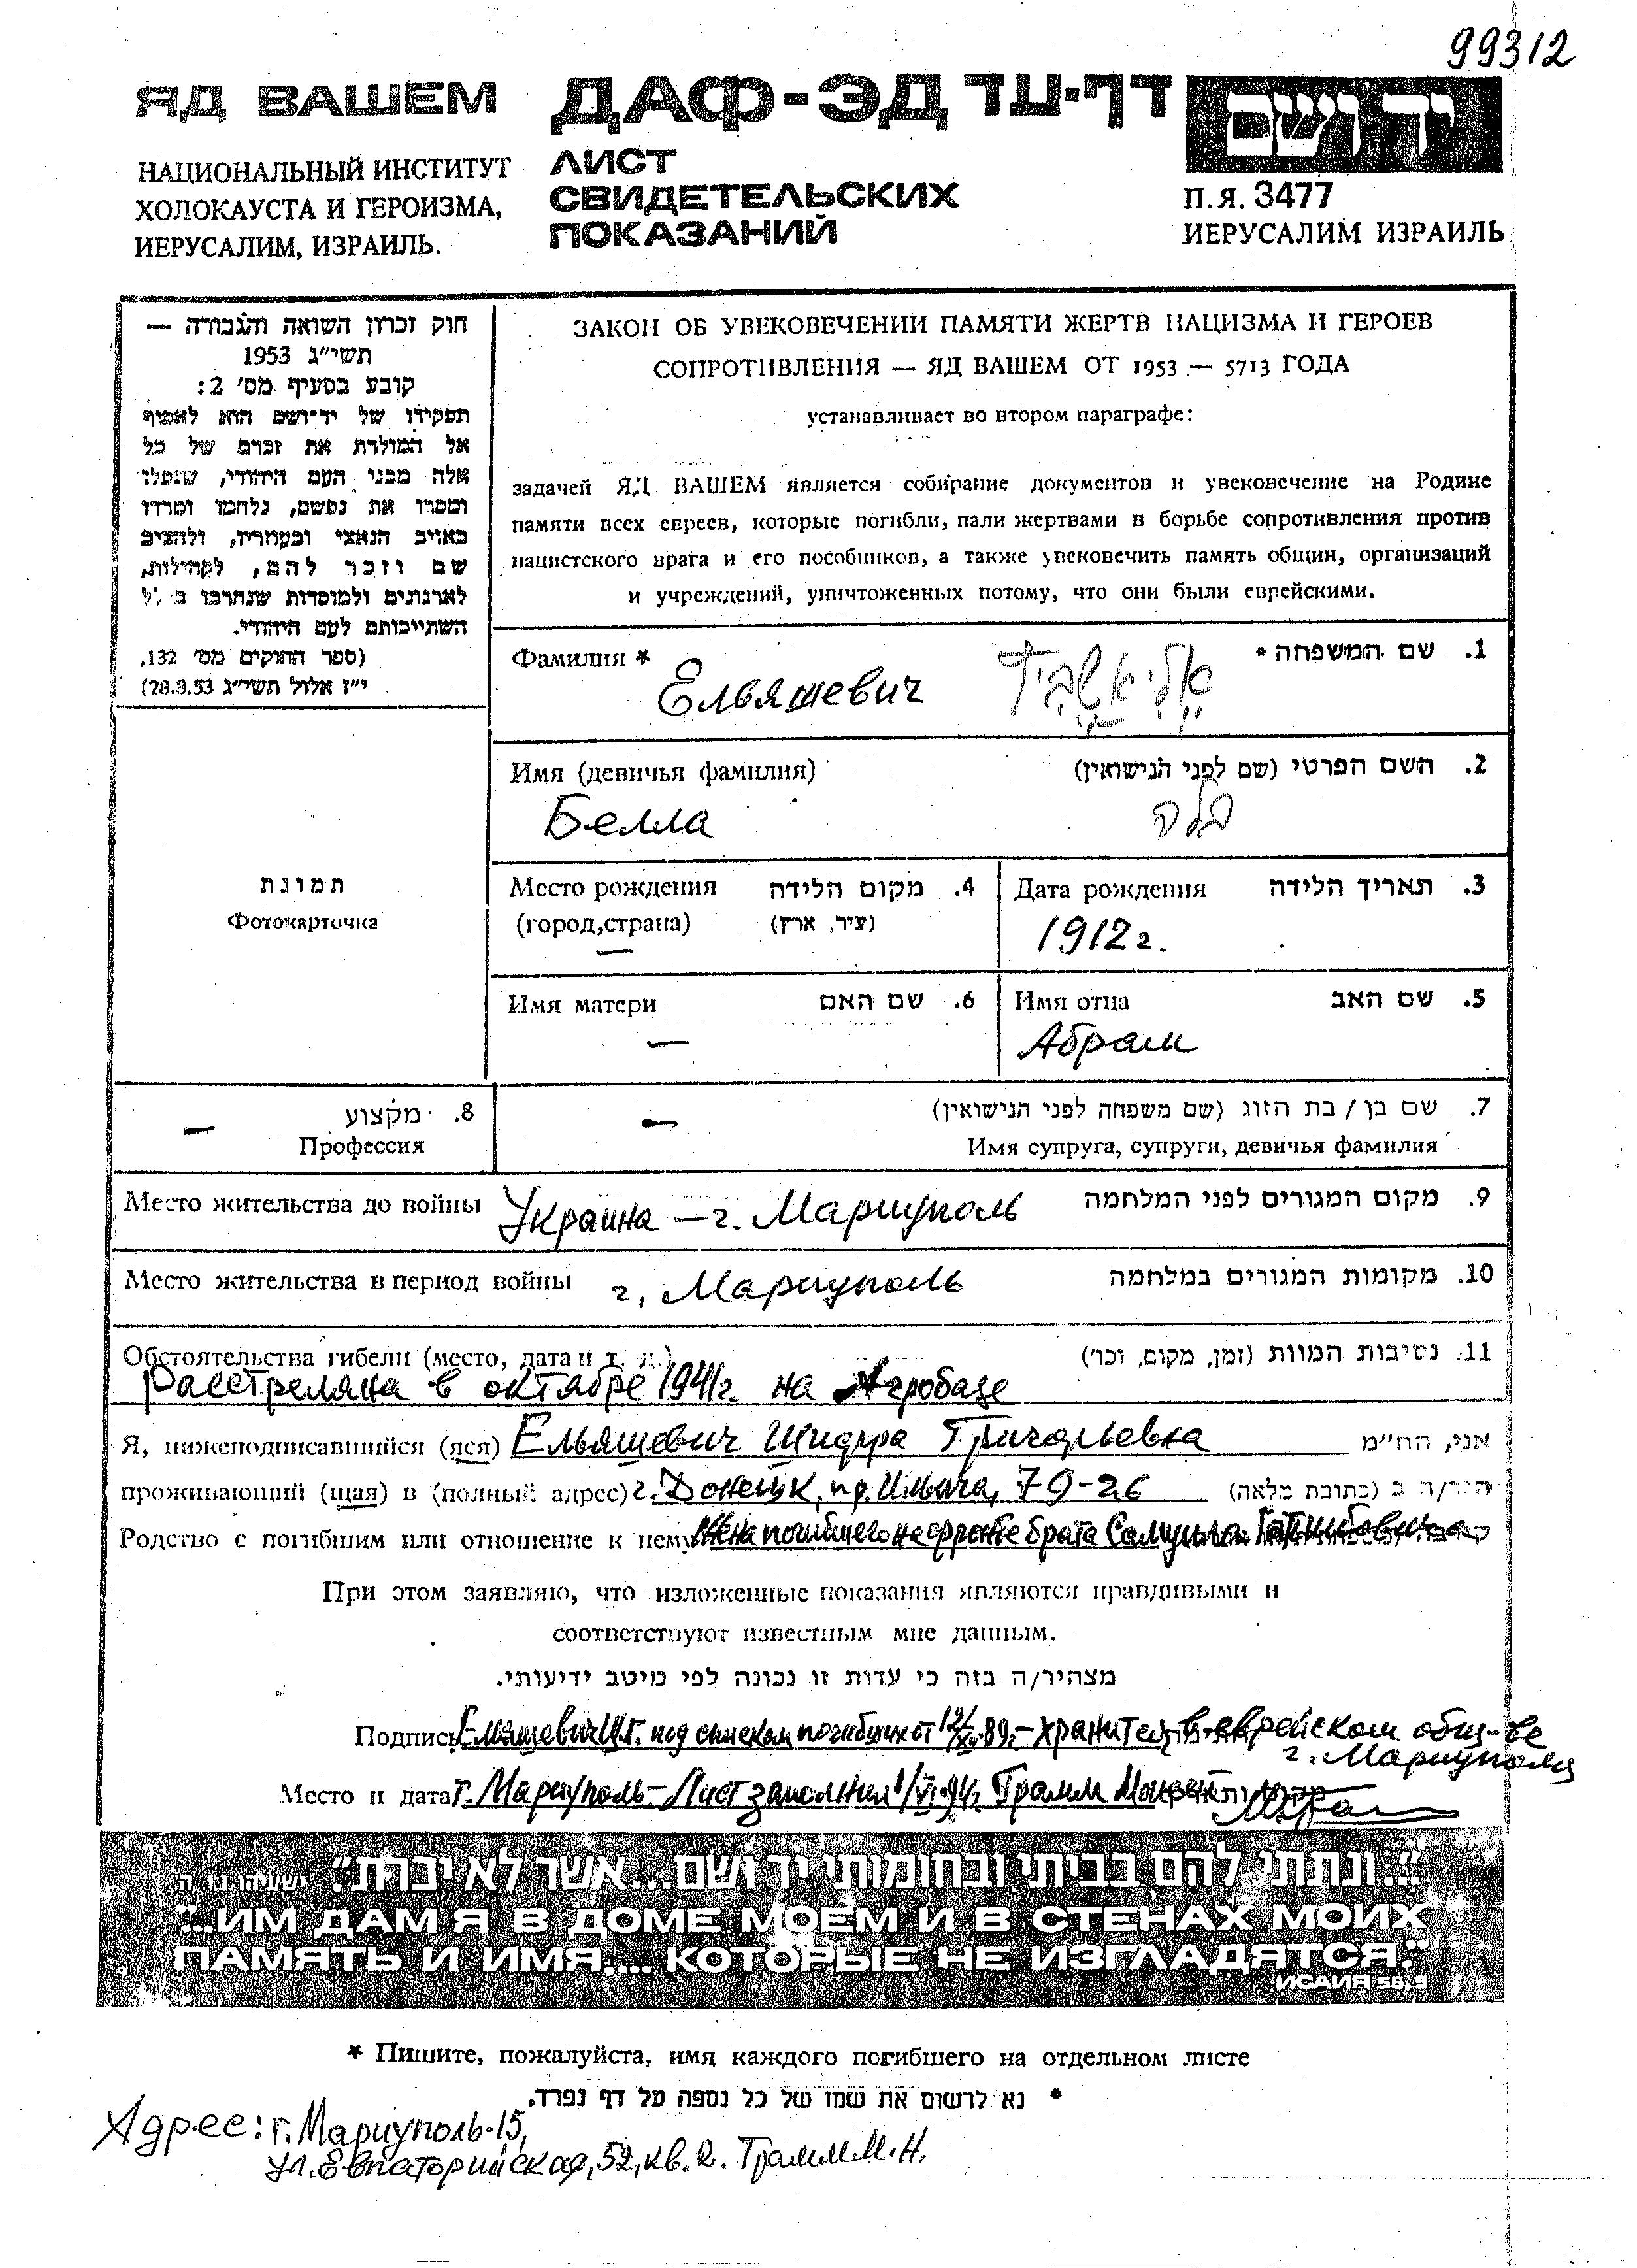 99312
ЯД ВАШЕМ ДАФ-ЭД דף-עד יד ושם
НАЦИОНАЛЬНЫЙ ИНСТИТУТ
ХОЛОКАУСТА И ГЕРОИЗМА,
ИЕРУСАЛИМ, ИЗРАИЛЬ.
ЛИСТ
СВИДЕТЕЛЬСКИХ
ПОКАЗАНИЙ
П.Я. 3477
ИЕРУСАЛИМ ИЗРАИЛЬ
חוק זכרון השואה והגבורה —
תשי״ג 1953
קובע בסעיף מס׳ 2:
תפקידו של יד־ושם הוא לאסוף
אל המולדת את זכרם של כל
אלה מבני העם היהודי, שנפלו
ומסרו את נפשם, נלחמו ומרדו
באויב הנאצי ובעוזריו, ולהציב
שם וזכר להם, לקהילות,
לארגונים ולמוסדות שנחרבו בגלל
השתייכותם לעם היהודי.
(ספר החוקים מס׳ 132,
י״ז אלול תשי״ג 28.8.53)
ЗАКОН ОБ УВЕКОВЕЧЕНИИ ПАМЯТИ ЖЕРТВ НАЦИЗМА И ГЕРОЕВ
СОПРОТИВЛЕНИЯ — ЯД ВАШЕМ ОТ 1953 — 5713 ГОДА
устанавливает во втором параграфе:
задачей ЯД ВАШЕМ является собирание документов и увековечение на Родине
памяти всех евреев, которые погибли, пали жертвами в борьбе сопротивления против
нацистского врага и его пособников, а также увековечить память общин, организаций
и учреждений, уничтоженных потому, что они были еврейскими.
Фамилия * 1. שם המשפחה *
Ельяшевич
2. השם הפרטי (שם לפני הנישואין) Имя (девичья фамилия)
Белла בלה
תמונת
Фотокарточка
Место рождения 4. מקום הלידה
(город,страна) (עיר, ארץ)
—
Дата рождения 3. תאריך הלידה
1912 г.
Имя матери 6. שם האם
—
Имя отца 5. שם האב
Абрам
8. מקצוע
— Профессия
7. שם בן / בת הזוג (שם משפחה לפני הנישואין)
— Имя супруга, супруги, девичья фамилия
Место жительства до войны Украина — г. Мариуполь 9. מקום המגורים לפני המלחמה
Место жительства в период войны г. Мариуполь 10. מקומות המגורים במלחמה
Обстоятельства гибели (место, дата и т. д.) 11. נסיבות המוות (זמן, מקום, וכו׳)
Расстреляна в октябре 1941г. на Агробазе
Я, нижеподписавшийся (яся) Ельяшевич Шифра Григорьевна אני, הח״מ
проживающий (щая) в (полный адрес) г. Донецк, пр. Ильича, 79-26 הגר/ה ב (כתובת מלאה)
Родство с погибшим или отношение к нему Жена погибшего на фронте брата Самуила
При этом заявляю, что изложенные показания являются правдивыми и
соответствуют известным мне данным.
מצהיר/ה בזה כי עדות זו נכונה לפי מיטב ידיעותי.
Подпись Ельяшевич Ш.Г. под списком погибших от 89. - хранится в еврейском общ-ве
г. Мариуполя
Место и дата г. Мариуполь - Лист заполнил 1/VI 94г. Грамм
״...ונתתי להם בביתי ובחומותי יד ושם...אשר לא יכרת״. ישעיהו נו, ה
"...ИМ ДАМ Я В ДОМЕ МОЕМ И В СТЕНАХ МОИХ
ПАМЯТЬ И ИМЯ,... КОТОРЫЕ НЕ ИЗГЛАДЯТСЯ."
ИСАИЯ 56,5
* Пишите, пожалуйста, имя каждого погибшего на отдельном листе
* נא לרשום את שמו של כל נספה על דף נפרד.
Адрес: г. Мариуполь-15,
ул. Евпаторийская, 52, кв. 2. Грамм М.Н.